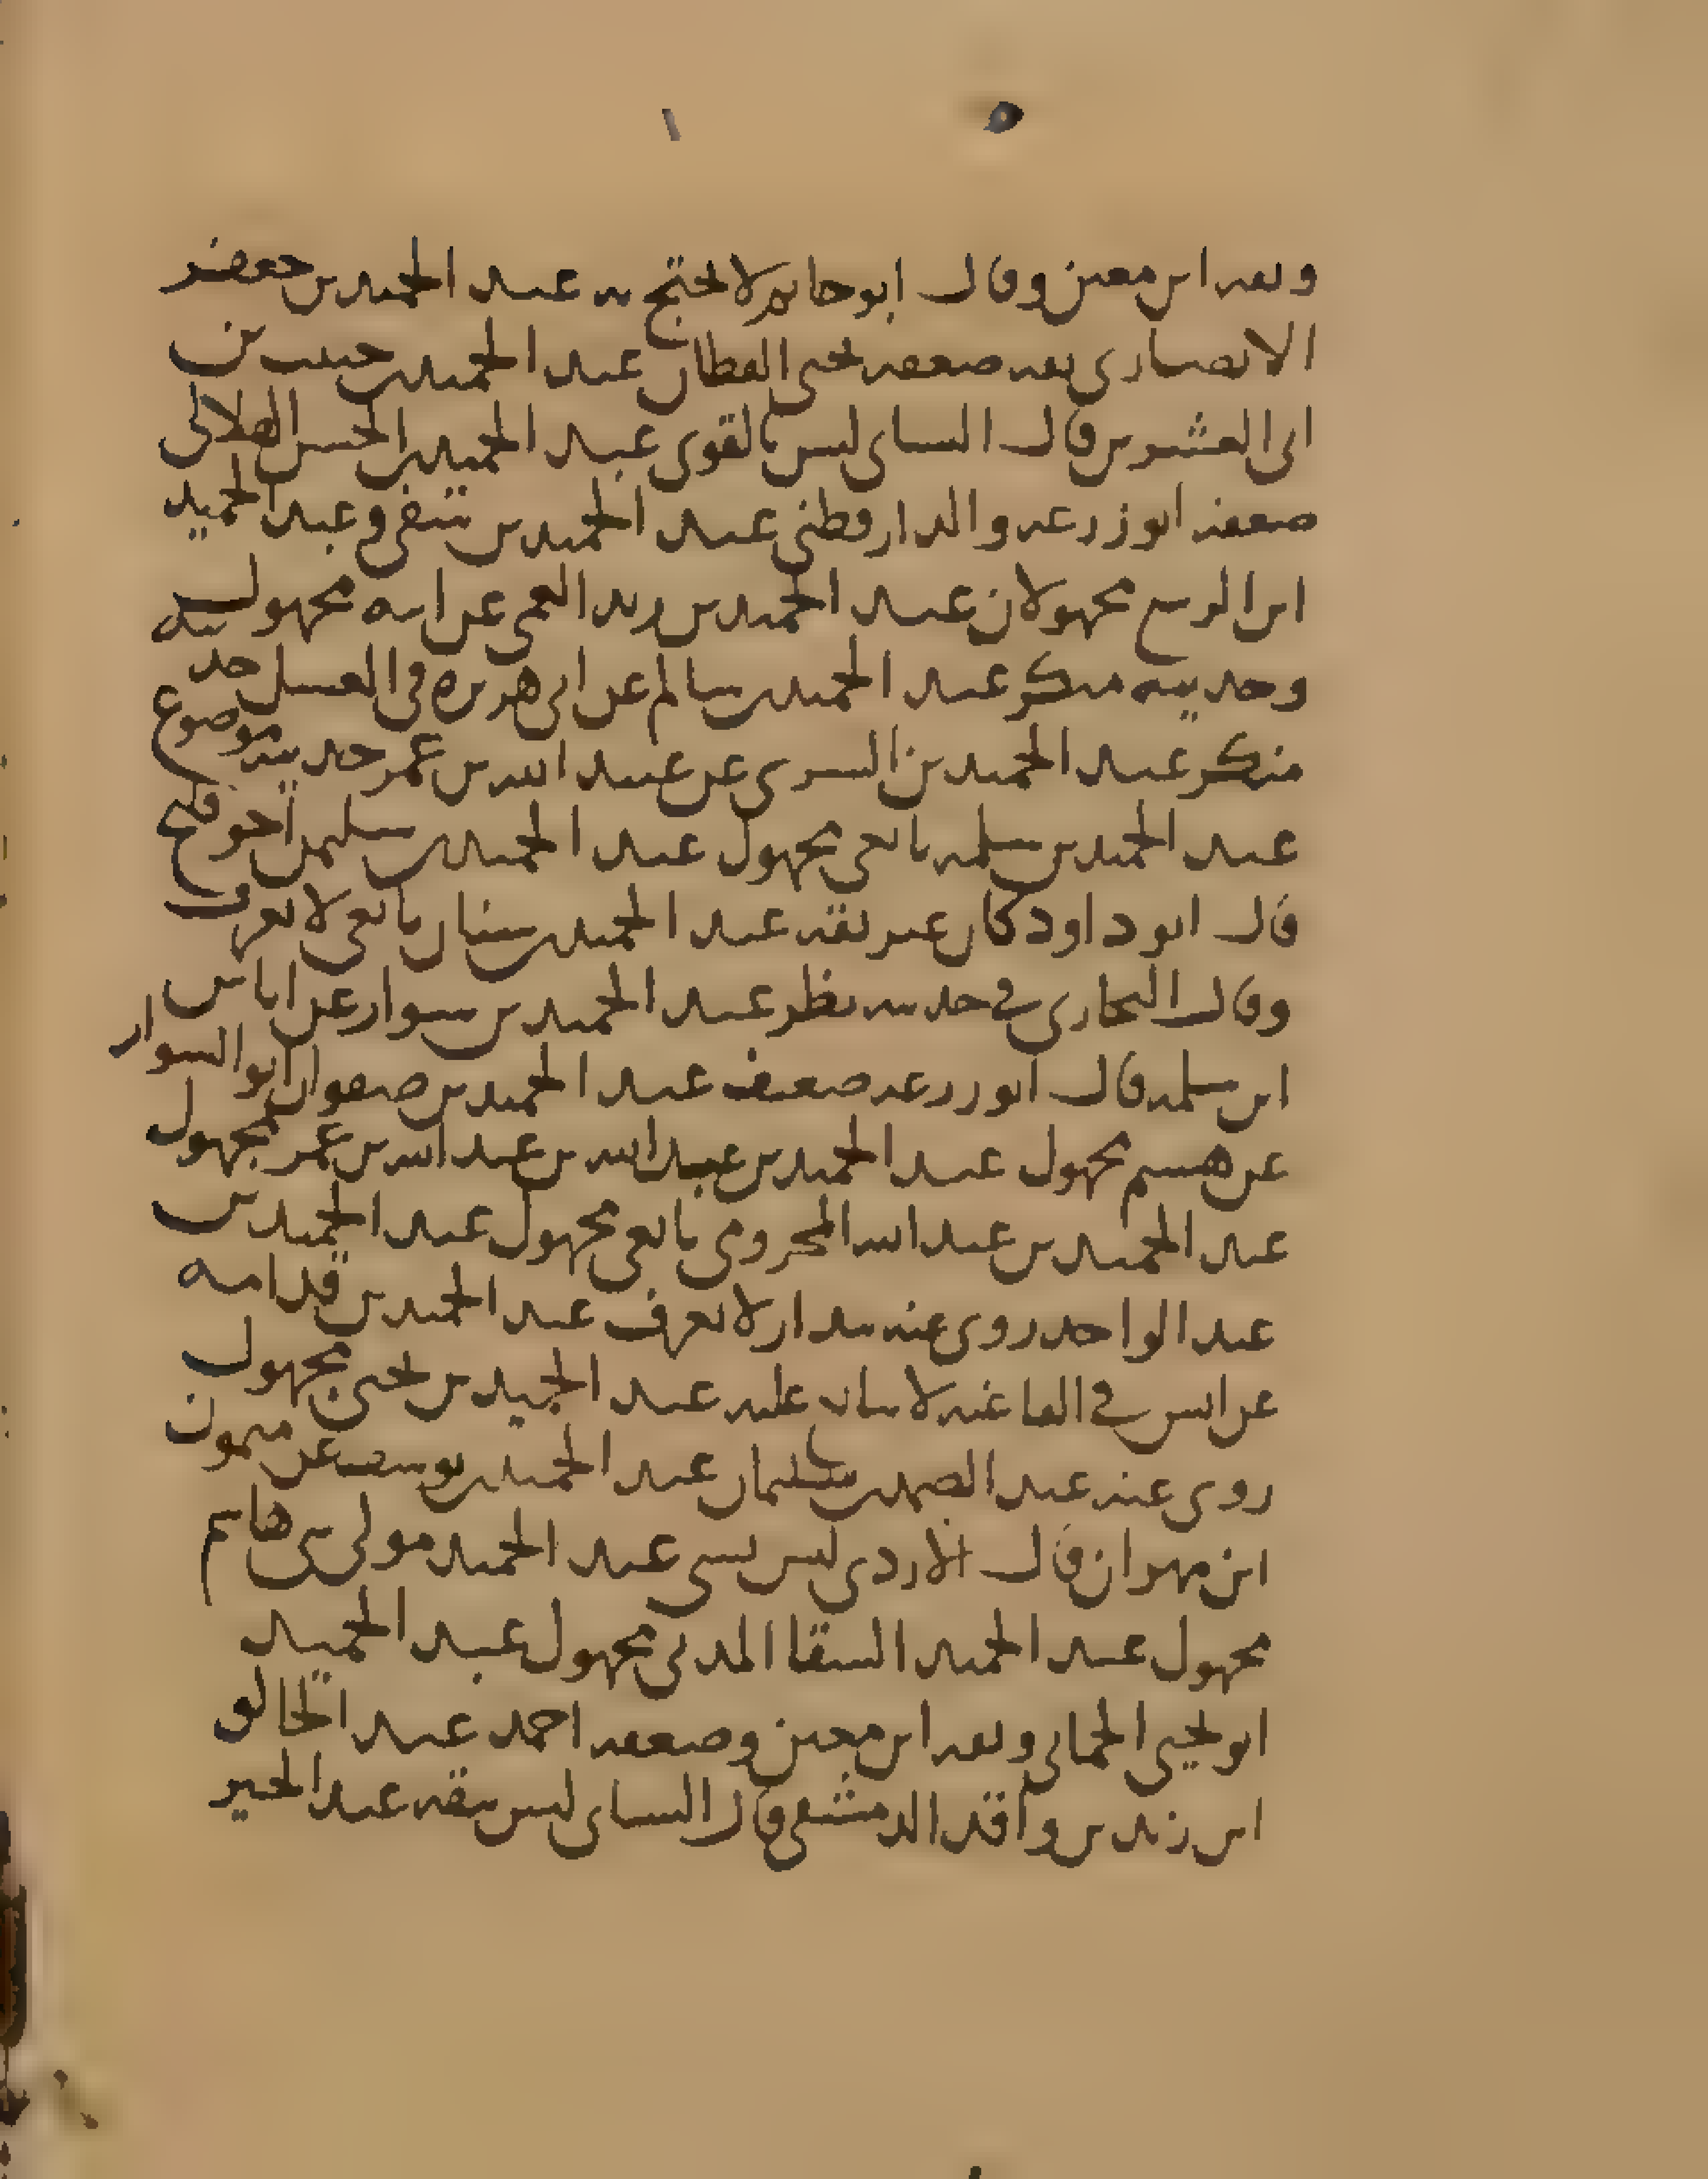 وثقه ابن معين وقال ابو حاتم لا يحتج به عبد الحميد بن جعفر
الانصاري ثقه ضعفه يحيى القطان عبد الحميد بن حبيب بن
ابي العشرين قال النساي ليس بالقوي عبد الحميد بن الحسن الهلالي
ضعفه ابو زرعه والدارقطني عبد الحميد بن وعبد الحميد
ابن الربيع مجهولان عبد الحميد بن زيد العمي عن ابيه مجهول
وحديثه منكر عبد الحميد بن سالم عن ابي هريره في العسل حديثه
منكر عبد الحميد بن السري عن عبيد الله بن عمر حديثه موضوع
عبد الحميد بن سلمه تابعي مجهول عبد الحميد بن سليمن اخو فليح
قال ابو داود كان غير ثقه عبد الحميد بن سنان تابعي لا يعرف
وقال البخاري في حديثه نظر عبد الحميد بن سوار عن اياس
ابن سلمه قال ابو زرعه ضعيف عبد الحميد بن صفوان ابو السوار
عن هشيم مجهول عبد الحميد بن عبد الله بن عبد الله بن عمر مجهول
عبد الحميد بن عبد الله المخزومي تابعي مجهول عبد الحميد بن
عبد الواحد روى عنه بندار لا يعرف عبد الحميد بن قدامه
عن انس في الفاغيه لا يتابع عليه عبد الحميد بن يحيى مجهول
روى عنه عبد الصمد بن سليمان عبد الحميد بن يوسف عن ميمون
ابن مهران قال الازدي ليس بشي عبد الحميد مولى بني هاشم
مجهول عبد الحميد السقا المدني مجهول عبد الحميد
ابو يحيى الحماني وثقه ابن معين وضعفه احمد عبد الخالق
ابن زيد بن واقد الدمشقي قال النساي ليس بثقه عبد الخير